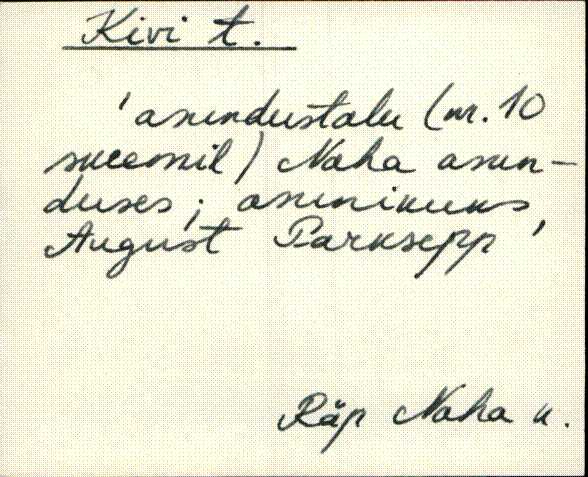 Kivi t.
'asundustalu (nr. 10
skeemil) Naha asun-
duses; asunikuks
August Parksepp'
Räp Naha k.